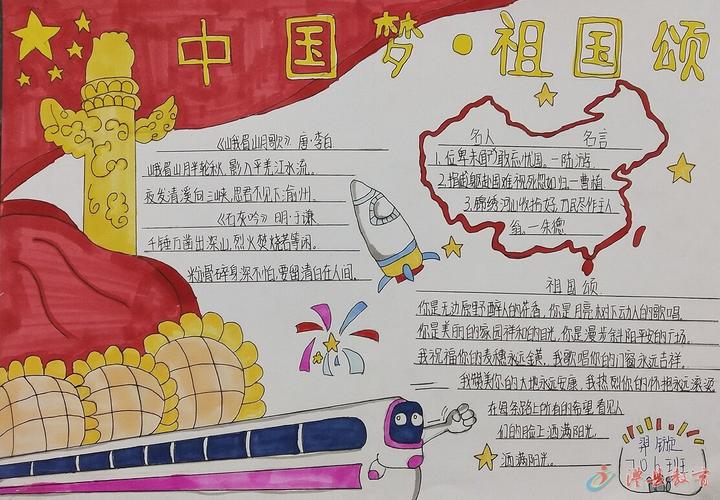 中国梦·祖国颂
《峨眉山月歌》唐·李白
峨眉山月半轮秋,影入平羌江水流。
夜发清溪向三峡,思君不见下渝州。
《石灰吟》明·于谦
千锤万凿出深山,烈火焚烧若等闲。
粉骨碎身浑不怕,要留清白在人间。
名人 名言
1.位卑未敢忘忧国。—陆游
2.捐躯赴国难视死忽如归—曹植
3.锦绣河山收拾好,万民尽作主人
翁。—朱德
祖国颂
你是无边原野醉人的花香,你是月亮树下动人的歌唱
你是美丽的家园祥和的目光,你是漫步斜阳平安的广场。
我祝福你的麦穗永远金黄,我歌唱你的门窗永远吉祥。
我赞美你的大地永远安康,我热烈你的怀抱永远滚烫
在每条路上所有的希望看见人
们的脸上洒满阳光。
洒满阳光。
706班
澧县教育